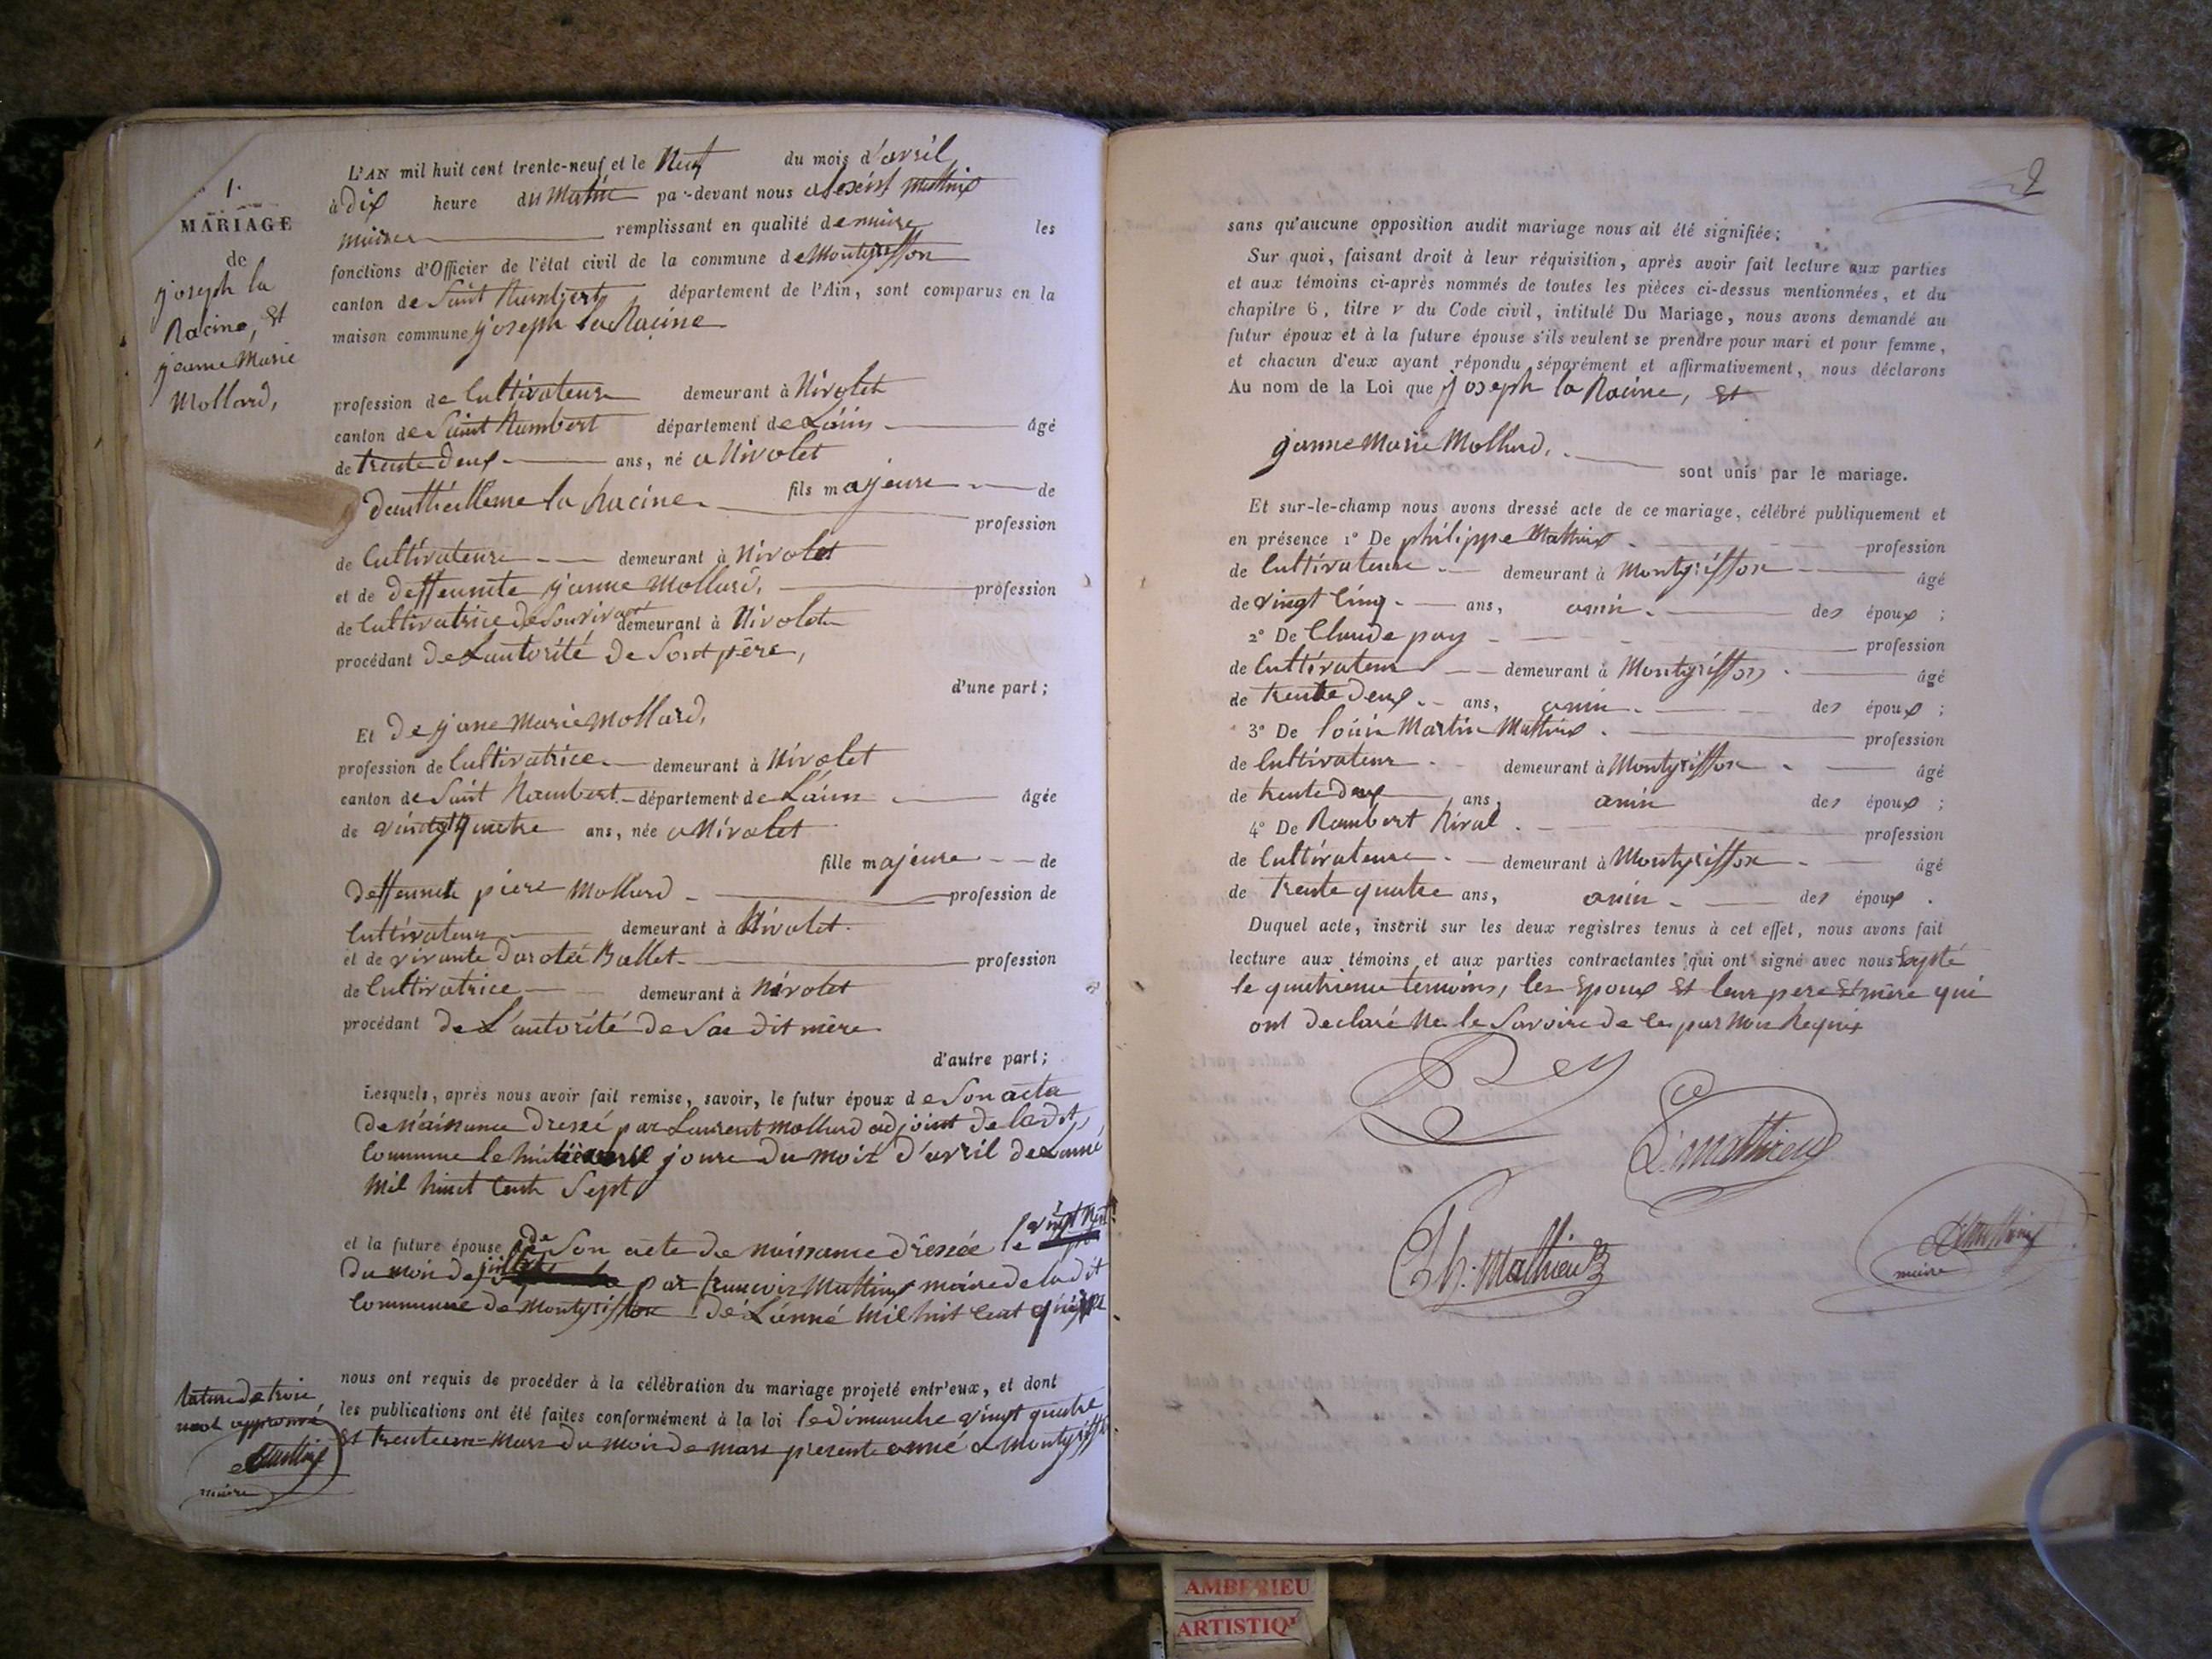 1.
MARIAGE
de
joseph la
Racine, et
jeanne Marie
Mollard,
L'AN mil huit cent trente-neuf et le Neuf du mois d'avril
à Dix heure du Matin par-devant nous Mathieux
maire remplissant en qualité de maire les
fonctions d'Officier de l'état civil de la commune de Montgriffon
canton de Saint Rambert département de l'Ain, sont comparus en la
maison commune joseph la Racine
profession de Cultivateur demeurant à Nivolet
canton de Saint Rambert département de L'ain âgé
de trente Deux ans, né a Nivolet
fils majeure de
la Racine profession
de Cultivateur demeurant à Nivolet
et de deffeunte janne Mollard, profession
de Cultivatrice De Son vivant demeurant à Nivolet
procédant de L'autorité de Sont père,
d'une part ;
Et De jane Marie Mollard,
profession de Cultivatrice demeurant à Nivolet
canton de Saint Rambert département de L'ain âgée
de vingt quatre ans, née a Nivolet
fille majeure de
deffeunt piere Mollard profession de
Cultivateur demeurant à Nivolet
et de vivante Darotée Ballet profession
de Cultivatrice demeurant à Nivolet
procédant de L'autorité de Sa dit mère
d'autre part ;
Lesquels, après nous avoir fait remise, savoir, le futur époux de Son acte
de naissance Dressé par Laurent Mollard adjoint de ladit
Commune le jour du mois d'avril de L'anné
mil huit Cent Sept
et la future épouse de Son acte de naissance dressée le vingt Neuf
du mois de juillet par francois Mathieux maire de ladit
Commune de Montgriffon de L'anné mil huit Cent quinze
nous ont requis de procéder à la célébration du mariage projeté entr'eux, et dont
les publications ont été faites conformément à la loi le dimanche vingt quatre
et trente un Mars du mois de mars presente anné a Montgriffon
Rature de trois
mot approuvé
maire
2
sans qu'aucune opposition audit mariage nous ait été signifiée ;
Sur quoi, faisant droit à leur réquisition, après avoir fait lecture aux parties
et aux témoins ci-après nommés de toutes les pièces ci-dessus mentionnées, et du
chapitre 6, titre V du Code civil, intitulé Du Mariage, nous avons demandé au
futur époux et à la future épouse s'ils veulent se prendre pour mari et pour femme,
et chacun d'eux ayant répondu séparément et affirmativement, nous déclarons
Au nom de la Loi que joseph la Racine, et
janne Marie Mollard, sont unis par le mariage.
Et sur-le-champ nous avons dressé acte de ce mariage, célébré publiquement et
en présence 1° De philippe Mathieux profession
de Cultivateur demeurant à Montgriffon âgé
de vingt Cinq ans, amis des époux ;
2° De Claude pay profession
de Cultivateur demeurant à Montgriffon âgé
de trente Deux ans, amis des époux ;
3° De Louis Martin Mathieux profession
de Cultivateur demeurant à Montgriffon âgé
de trente Deux ans, amis des époux ;
4° De Rambert Rival profession
de Cultivateur demeurant à Montgriffon âgé
de trente quatre ans, amis des époux .
Duquel acte, inscrit sur les deux registres tenus à cet effet, nous avons fait
lecture aux témoins et aux parties contractantes qui ont signé avec nous Exepté
le quatrieme temoins, les Epoux et leur pere et mère qui
ont declaré Ne le Savoire de ce par Nous Requis
Rey
L. Mathieux
Ph. Mathieux
maire
AMBERIEU
ARTISTIQ